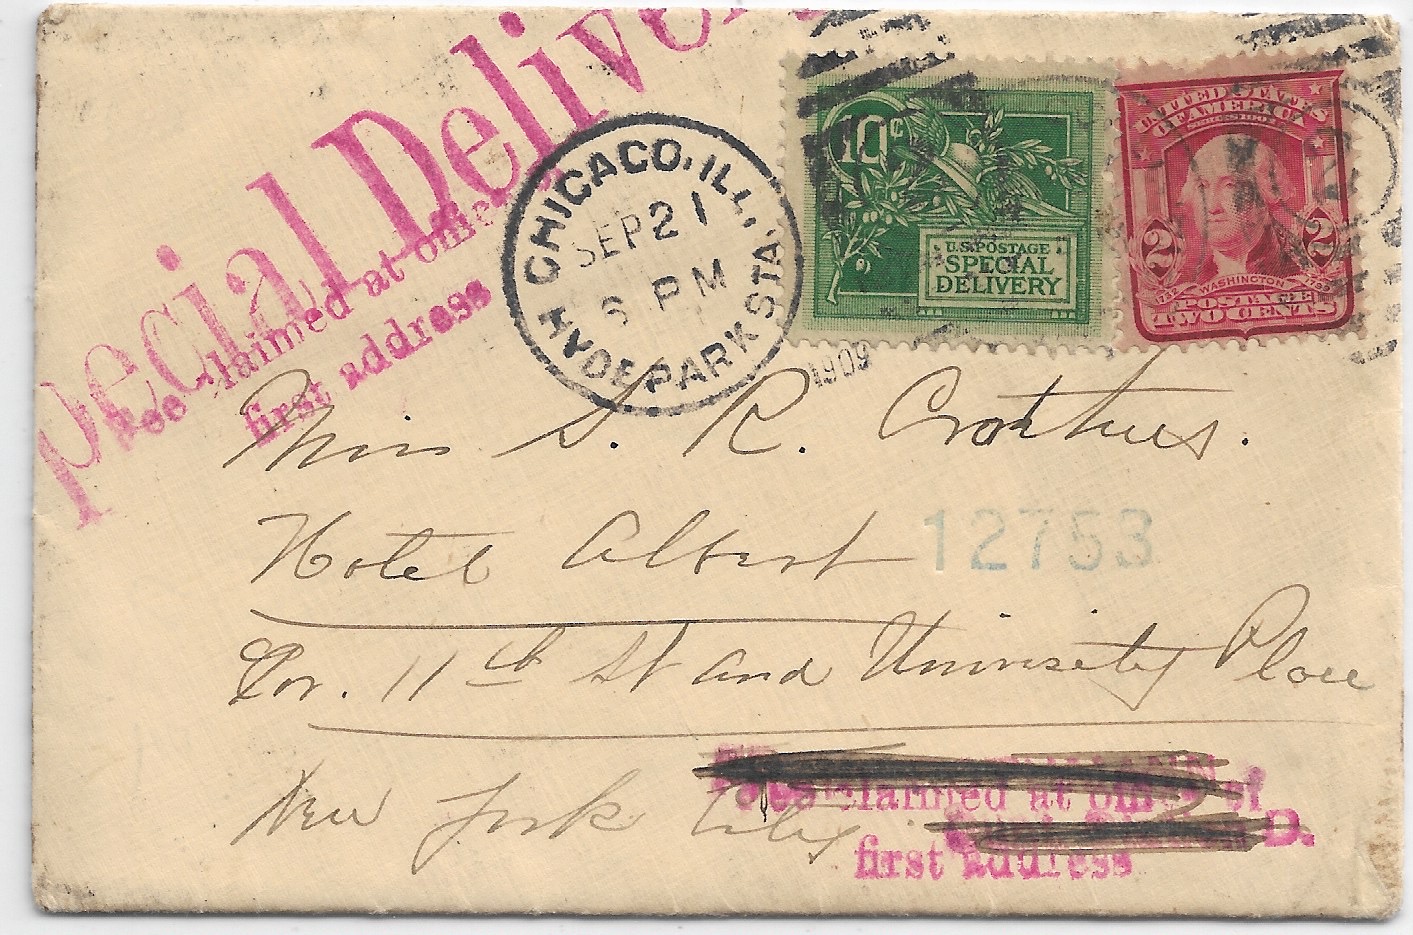 Special Delivery
Fee claimed at office
first address
CHICAGO, ILL.
SEP 21
6 PM
HYDE PARK STA.
1909
10c
U.S. POSTAGE
SPECIAL
DELIVERY
UNITED STATES
OF AMERICA
SERIES 1902
2 2
1732 WASHINGTON 1799
POSTAGE
TWO CENTS
Miss S. R. Crothers.
Hotel Albert
12753
Cor. 11th St and University Place
New York City
Fee claimed at office of
D.
first address